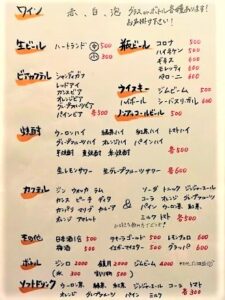 ワイン 赤、白、泡 グラス or ボトル 各種あります！
お声掛け下さい！
生ビール ハートランド 中 500 小 300
瓶ビール コロナ 500
ハイネケン 500
ギネス 600
モレッティ 600
ペローニ 600
ビアカクテル シャンディガフ
レッドアイ
カシスビア
オレンジビア
グレープフルーツビア
パインビア 各500
ウイスキー ジムビーム 500
ハイボール シーバスリーガル 600
ノンアルコールビール 500
焼酎 ウーロンハイ 緑茶ハイ 紅茶ハイ トマトハイ
グレープフルーツハイ オレンジハイ パインハイ
芋焼酎 麦焼酎 米焼酎 各500
生レモンサワー 生グレープフルーツサワー 各600
カクテル ジン ウォッカ ラム
カシス ピーチ ディタ
カンパリ マリブ カルーア
アマレット
&
ソーダ トニック ジンジャーエール
コーラ オレンジ グレープフルーツ
パイン ウーロン茶 紅茶
ミルク トマト 各500
その他 日本酒1合 500
梅酒 500
テキーラゴールド 500
イエガーマイスター 500
レモンチェロ 600
グラッパ 600
ボトル ジンロ 2000 鏡月 2500 ジムビーム 4000
(水 300 割り物 500)
ソフトドリンク ウーロン茶 緑茶 紅茶 ジンジャーエール コーラ トマト
オレンジ グレープフルーツ パイン ミルク 各300